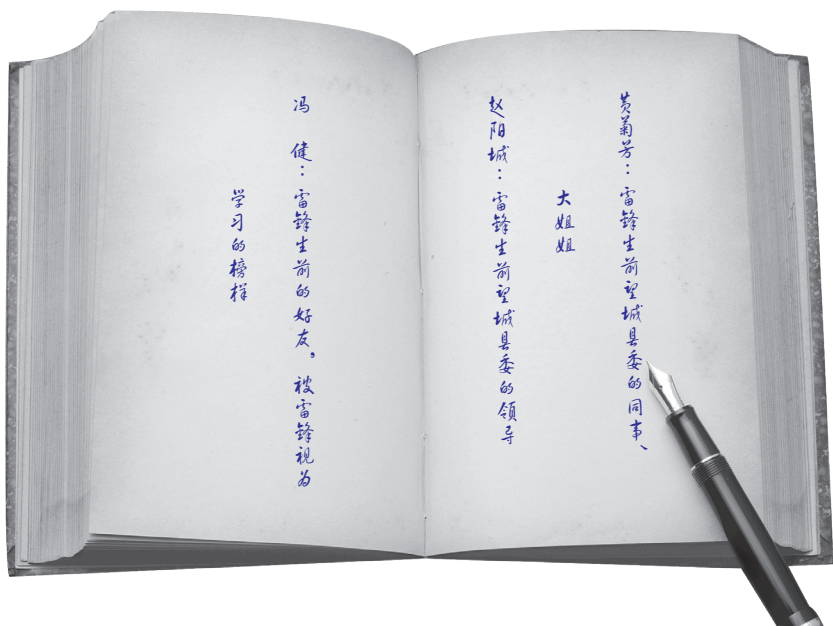 黄菊芳：雷锋生前望城县委的同事、
大姐姐
赵阳城：雷锋生前望城县委的领导
冯　健：雷锋生前的好友，被雷锋视为
学习的榜样